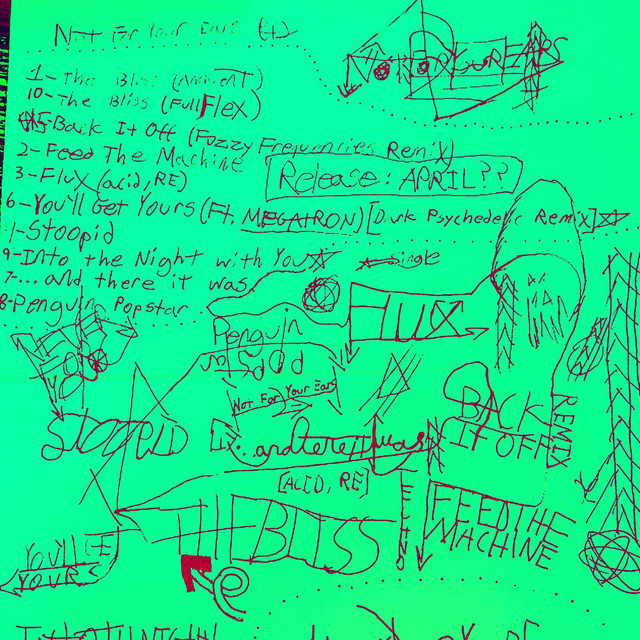 Not For Your Ears (+)
NOTFORYOUREARS
1-The Bliss (Ambient)
10-The Bliss (Full Flex)
5-Back It Off (Fozzy Frequencies Remix)
2-Feed The Machine
Release: APRIL??
3-Flux (acid, RE)
6-You'll Get Yours (Ft. MEGATRON) [Dark Psychedelic Remix]
1-Stoopid
9-Into the Night with You
-Single
7-...and there it was
8-Penguin Popstar
FLUX
Penguin
Not For Your Ears
STOOPID
BACK
IT OFF
REMIX
...andthereitwas
[ACID, RE]
BLISS
FEEDTHE
MACHINE
YOU'LL
YOURS